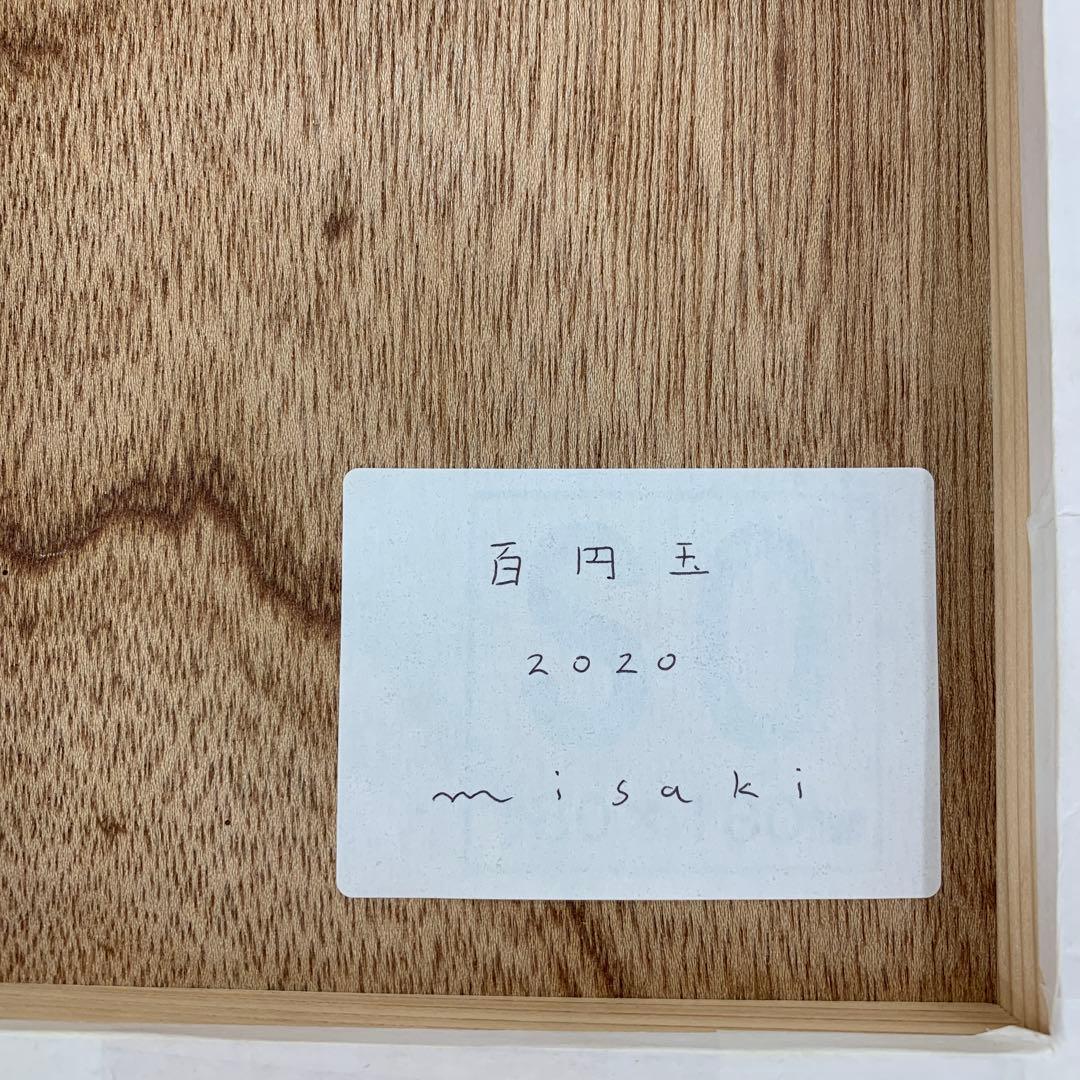 百円玉
2020
misaki